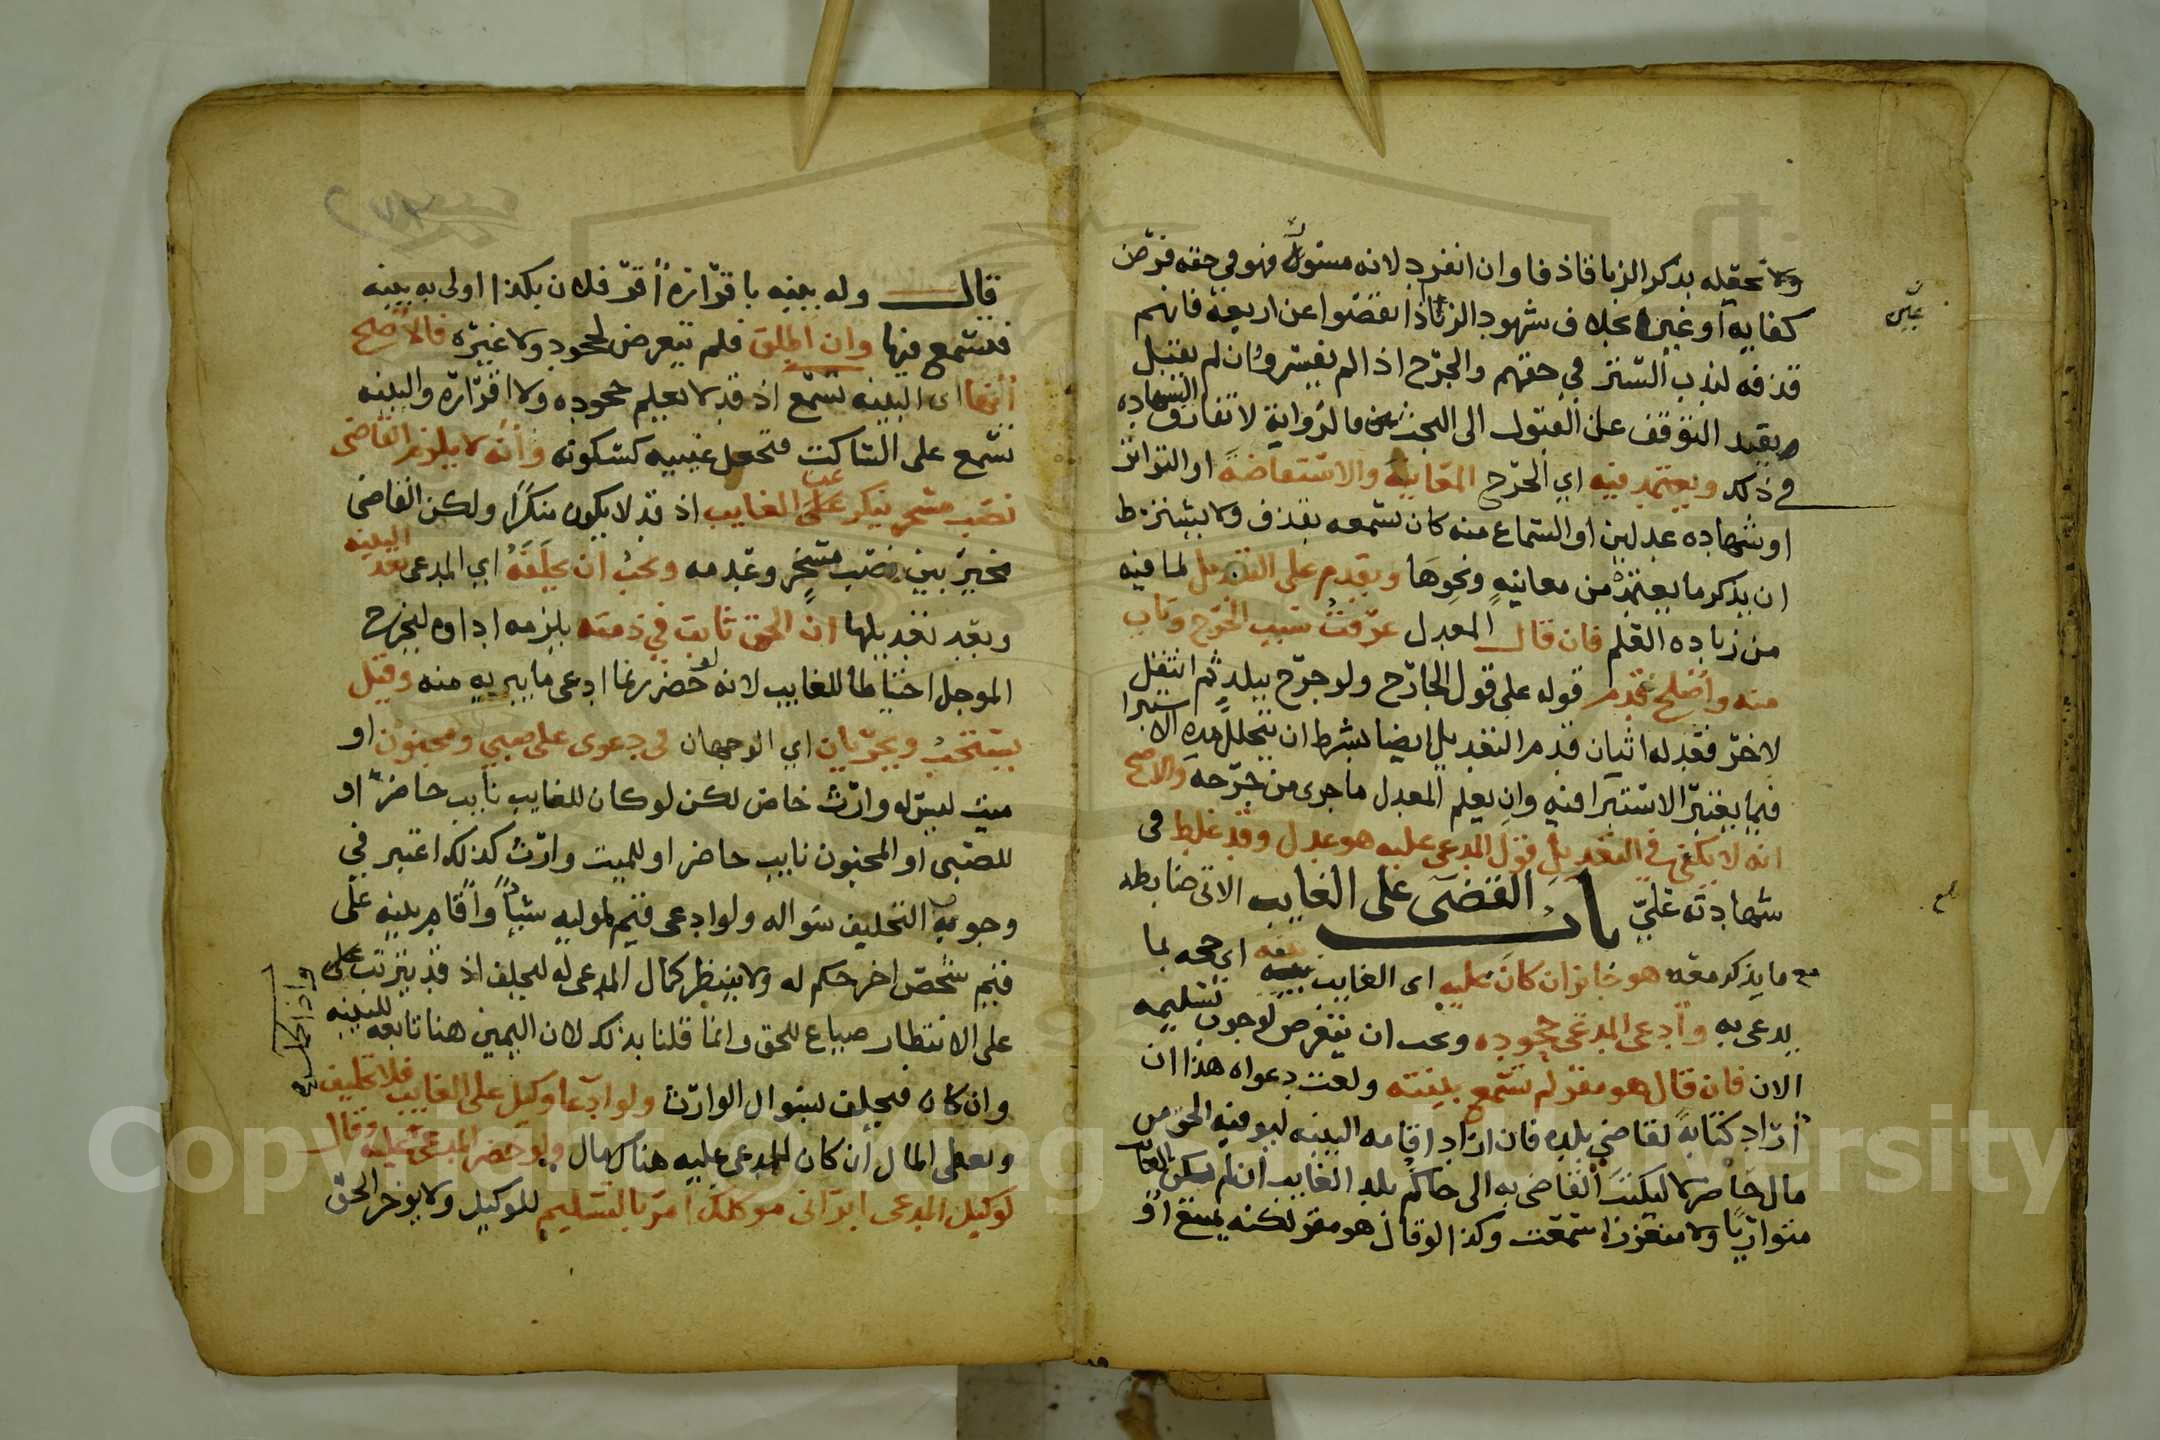 ولا نجعله بذكر الزنا قاذفا وان انفرد لانه مسئول فهو في حقه فرض
كفاية أو عين بخلاف شهود الزنا اذا نقصوا عن اربعة فانهم
قذفة لندب الستر في حقهم والجرح اذا لم يفسر وان لم يقبل
يفيد التوقف على القبول الى البحث عن ما الرواية لا تفارق الشهادة
في ذلك ويعتمد فيه اي الجرح المعاينة والاستفاضة او التواتر
او شهادة عدلين او السماع منه كان سمعه يقذف ولا يشترط
ان يذكر ما يعتمد من معاينة ونحوها ويقدم على التعديل لما فيه
من زيادة العلم فان قال المعدل عرفت سبب الجرح وتاب
منه وأصلح قدم قوله على قول الجارح ولو جرح ببلد ثم انتقل
لاخر فعدله اثنان قدم التعديل ايضا بشرط ان يتخلل مدة الاستبرا
فيما يعتبر الاستبرا فيه وان يعلم المعدل ما جرى من جرحه والاصح
انه لا يكفي في التعديل قول المدعى عليه هو عدل وقد غلط في
شهادته عليّ باب القضى على الغايب الاتي ضابطه
مع ما يذكر معه هو جايز ان كان عليه اى الغايب بينة اي حجه بما
يدعى به وادعى المدعي جحوده ويجب ان يتعرض لوجوب تسليمه
الان فان قال هو مقر لم تسمع بينته ولغت دعواه هذا ان
أراد كتابة لقاضي بلده فان اراد اقامه البينه ليوفيه الحق من
مال حاضر لا ليكتب القاضي به الى حاكم بلد الغايب ان لم يكن الغايب
متواريا ولا متعززا سمعت وكذا لو قال هو مقر لكنه يمتنع أو
عين
قال وله بينه باقراره أقر فلان بكذا اولى به بينه
فتسمع فيها وان اطلق فلم يتعرض لجحود ولا غيره فالأصح
أنها اى البينه تسمع اذ قد لا يعلم جحوده ولا اقراره والبينه
تسمع على الساكت فتجعل غيبته كسكوته وأنه لا يلزم القاضى
نصب مسخر ينكر على الغايب اذ قد لا يكون منكرا ولكن القاضى
مخير بين نصب مسخر وعدمه ويجب ان يحلفه اي المدعى بعد البينه
وبعد تعديلها ان الحق ثابت في ذمته يلزمه اداوه ليخرج
الموجل احتياطا للغايب لانه لو حضر ربما ادعى ما يبريه منه وقيل
يستحب ويجريان اي الوجهان في دعوى على صبي ومجنون او
ميت ليس له وارث خاص لكن لو كان للغايب نايب حاضر او
للصبى او المجنون نايب حاضر او للميت وارث كذلك اعتبر في
وجوب التحليف سواله ولو ادعى قيم لموليه شيأ وأقام بينه على
قيم شخص اخر حكم له ولا ينتظر كمال المدعى له ليحلف اذ قد يترتب على
على الانتظار ضياع للحق وانما قلنا بذلك لان اليمين هنا تابعه للبينه
وان كان فيحلف لسوال الوارث ولو ادعا وكيل على الغايب فلا تحليف
ويعطى المال ان كان للمدعى عليه هناك مال ولو حضر المدعى عليه وقال
لوكيل المدعى ابرانى موكلك امر بالتسليم للوكيل ولا يوخر الحق